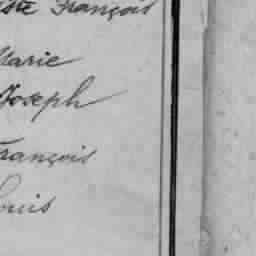 François
Marie
Joseph
François
Louis